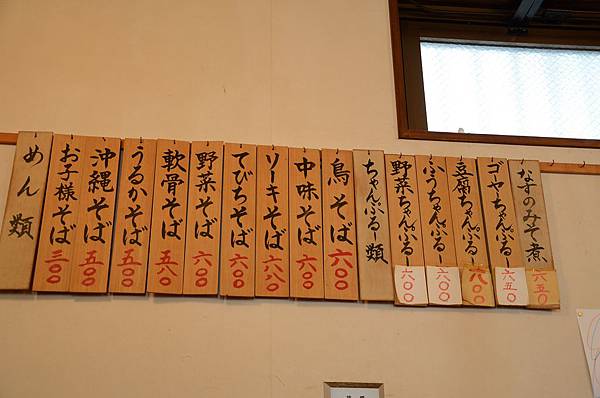 なすのみそ煮 六五〇
ゴーヤーちゃんぷるー 六五〇
豆腐ちゃんぷるー 六〇〇
ふうちゃんぷるー 六〇〇
野菜ちゃんぷるー 六〇〇
ちゃんぷるー類
鳥そば 六〇〇
中味そば 六〇〇
ソーキそば 六八〇
てびちそば 六〇〇
野菜そば 六〇〇
軟骨そば 五八〇
うるかそば 五〇〇
沖縄そば 五〇〇
お子様そば 三〇〇
めん類